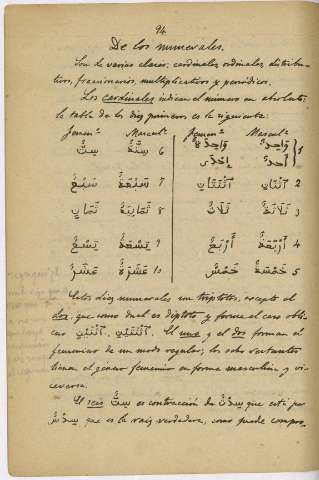 94
De los numerales.
Son de varias clases; cardinales, ordinales, distribu-
tivos, fraccionarios, multiplicativos y periódicos.
Los cardinales indican el número en absoluto;
la tabla de los diez primeros es la siguiente:
Femenº Masculº Femenº Mascul.º
سِتٌّ سِتَّةٌ 6 وَاحِدَةٌ وَاحِدٌ 1
إِحْدَى أَحَدٌ
سَبْعٌ سَبْعَةٌ 7 اثْنَتَانِ اثْنَانِ 2
ثَمَانٍ ثَمَانِيَةٌ 8 ثَلَاثٌ ثَلَاثَةٌ 3
تِسْعٌ تِسْعَةٌ 9 أَرْبَعٌ أَرْبَعَةٌ 4
عَشْرٌ عَشَرَةٌ 10 خَمْسٌ خَمْسَةٌ 5
Estos diez numerales son triptotos, excepto el
dos, que como dual es diptoto y forma el caso obli-
cuo اثْنَيْنِ, اثْنَتَيْنِ. El uno y el dos forman el
femenino de un modo regular; los ocho restantes
tienen el género femenino en forma masculina y vi-
ceversa.
El seis سِتٌّ es contracción de سِدْتٌ que está por
سِدْسٌ que es la raiz verdadera, como puede compro-